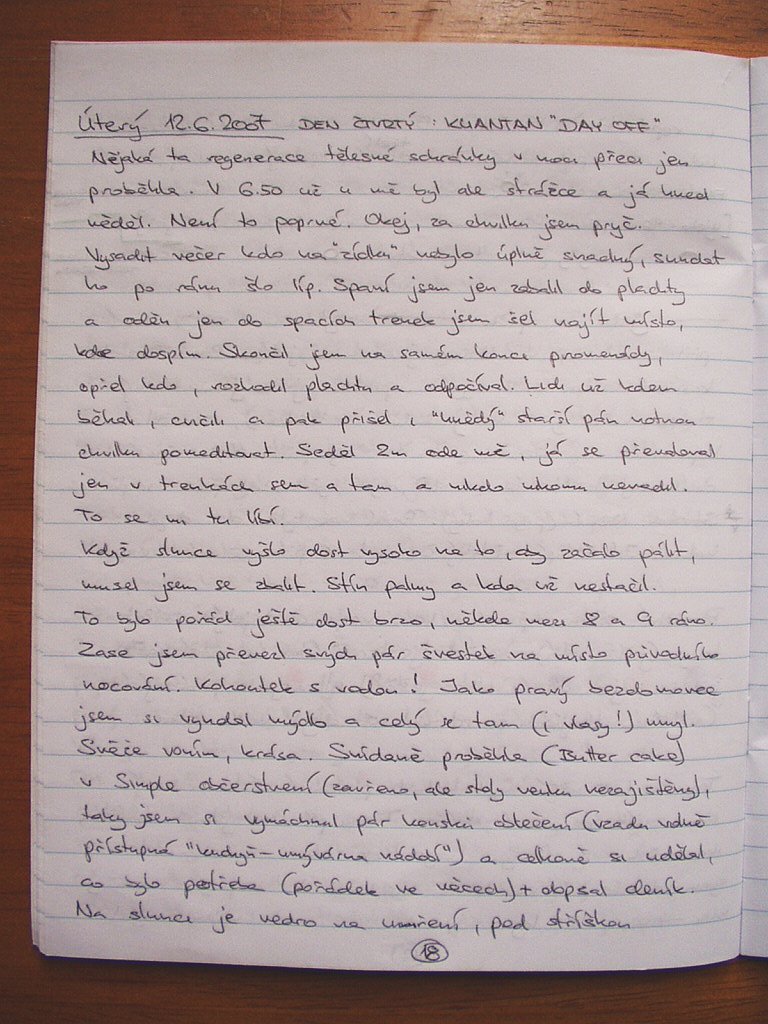 Úterý 12.6.2007 DEN ČTVRTÝ : KUANTAN "DAY OFF"
Nějaká ta regenerace tělesné schránky v noci přeci jen
proběhla. V 6.50 už u mě byl ale strážce a já hned
věděl. Není to poprvé. Okej, za chvilku jsem pryč.
Vysadit večer kolo na "zídku" nebylo úplně snadný, sundat
ho po ránu šlo líp. Spaní jsem jen zabalil do plachty
a oděn jen do spacích trenek jsem šel najít místo,
kde dospím. Skončil jsem na samém konci promenády,
opřel kolo, rozhodil plachtu a odpočíval. Lidi už kolem
běhali, cvičili a pak přišel i "hnědý" starší pán notnou
chvilku pomeditovat. Seděl 2m ode mě, já se převaloval
jen v trenkách sem a tam a nikdo nikomu nevadil.
To se mi tu líbí.
Když slunce vyšlo dost vysoko na to, aby začalo pálit,
musel jsem se zbalit. Stín palmy a kola už nestačil.
To bylo pořád ještě dost brzo, někde mezi 8 a 9 ráno.
Zase jsem převezl svých pár švestek na místo původního
nocování. Kohoutek s vodou! Jako pravý bezdomovec
jsem si vyndal mýdlo a celý se tam (i vlasy!) umyl.
Svěže voním, krása. Snídaně proběhla (Butter cake)
v Simple občerstvení (zavřeno, ale stoly venku nezajištěny),
taky jsem si vymáchnul pár kousků oblečení (vzadu volně
přístupná "kuchyň-umývárna nádobí") a celkově si udělal,
co bylo potřeba (pořádek ve věcech) + dopsal deník.
Na slunci je vedro na umření, pod stříškou
18